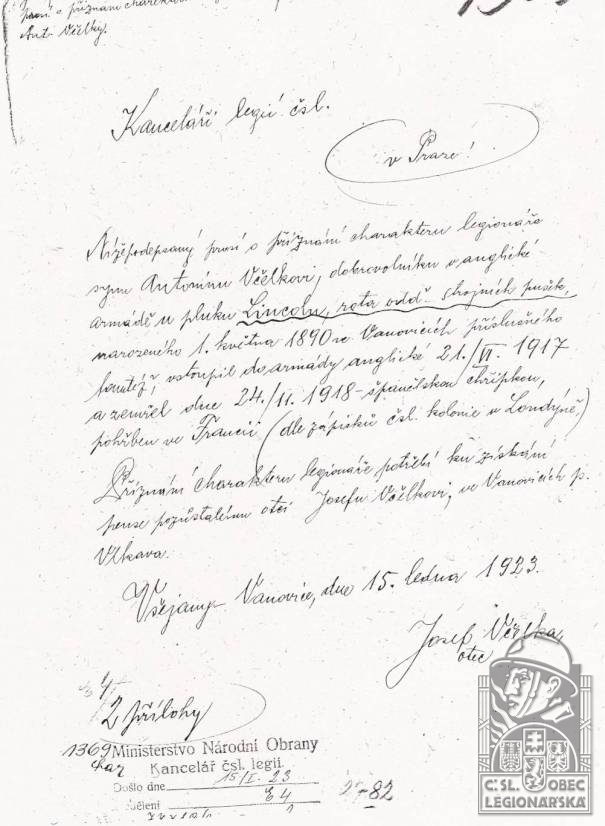 prosí o přiznání charakteru
Ant. Včelky.
Kanceláři legií čsl.
v Praze!
Nížepodepsaný prosí o přiznání charakteru legionáře
synu Antonínu Včelkovi, dobrovolníku v anglické
armádě u pluku Lincoln, rota odd. strojních pušek,
narozeného 1. května 1890 ve Vanovicích příslušného
tamtéž, vstoupil do armády anglické 21./VI. 1917
a zemřel dne 24./II. 1918 španělskou chřipkou,
pohřben ve Francii (dle zápisků čsl. kolonie v Londýně,)
Přiznání charakteru legionáře potřebí ku získání
pense pozůstalému otci Josefu Včelkovi, ve Vanovicích p.
Vlkava.
Všejamy-Vanovice, dne 15. ledna 1923.
Josef Včelka
otec
2 přílohy
1369 Ministerstvo Národní Obrany
Kancelář čsl. legií.
Došlo dne 15/I. 23
dělení 64
82
ČSL. OBEC
LEGIONÁŘSKÁ